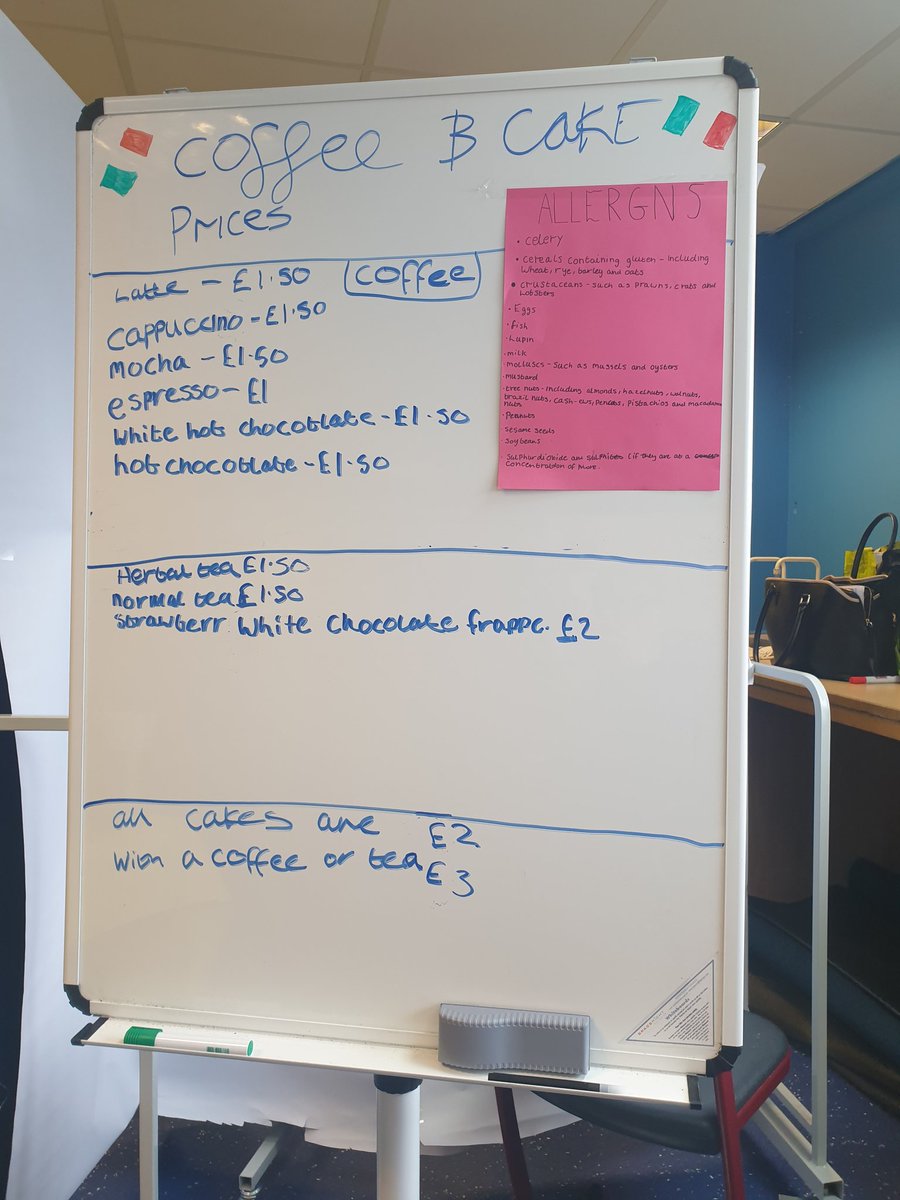 coffee B CAKE
Prices
Latte - £1.50
coffee
cappuccino - £1.50
mocha - £1.50
espresso - £1
white hot chocotlate - £1.50
hot chocotlate - £1.50
Herbal tea £1.50
normal tea £1.50
strawberr white chocolate frappe. £2
all cakes are £2
with a coffee or tea £3
ALLERGNS
• celery
• cereals containing gluten - including
wheat, rye, barley and oats
• crustaceans - such as prawns, crabs and
lobsters
• Eggs
• fish
• Lupin
• milk
• molluscs - such as mussels and oysters
• mustard
• tree nuts - including almonds, hazelnuts, walnuts,
brazil nuts, cashews, pecans, pistachios and macadamia
nuts
• Peanuts
• sesame seeds
• soybeans
• sulphur dioxide and sulphites (if they are at a
concentration of more